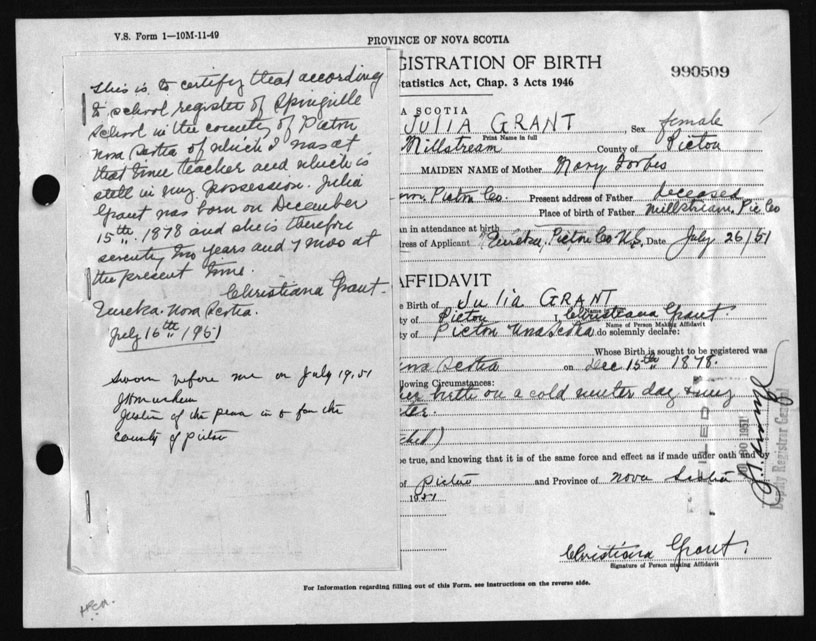 V.S. Form 1—10M-11-49
PROVINCE OF NOVA SCOTIA
GISTRATION OF BIRTH
Statistics Act, Chap. 3 Acts 1946
990509
This is to certify that according
to school register of Springville
School in the county of Pictou
Nova Scotia of which I was at
that time teacher and which is
still in my possession. Julia
Grant was born on December
15th. 1878 and she is therefore
seventy two years and 7 mos at
the present time.
Christiana Grant.
Eureka. Nova Scotia.
July 16th 1951
Sworn before me on July 19, 51
Justice of the peace in & for the
county of Pictou
A SCOTIA
JULIA GRANT, Sex female
Print Name in full
Millstream County of Pictou
MAIDEN NAME of Mother Mary Forbes
Pictou Co. Present address of Father deceased
Place of birth of Father Millstream, Pic Co
an in attendance at birth
ress of Applicant Eureka, Pictou Co N.S. Date July 26/51
AFFIDAVIT
e Birth of Julia GRANT
ty of Pictou I, Christiana Grant
Name of Person Making Affidavit
ty of Pictou Nova Scotia do solemnly declare:
Whose Birth is sought to be registered was
Nova Scotia on Dec 15th 1878.
llowing Circumstances:
her birth on a cold winter day & my
ched)
be true, and knowing that it is of the same force and effect as if made under oath and by
of Pictou and Province of Nova Scotia
1951
FILED
1951
Deputy Registrar General
Christiana Grant.
Signature of Person making Affidavit
For Information regarding filling out of this Form, see instructions on the reverse side.